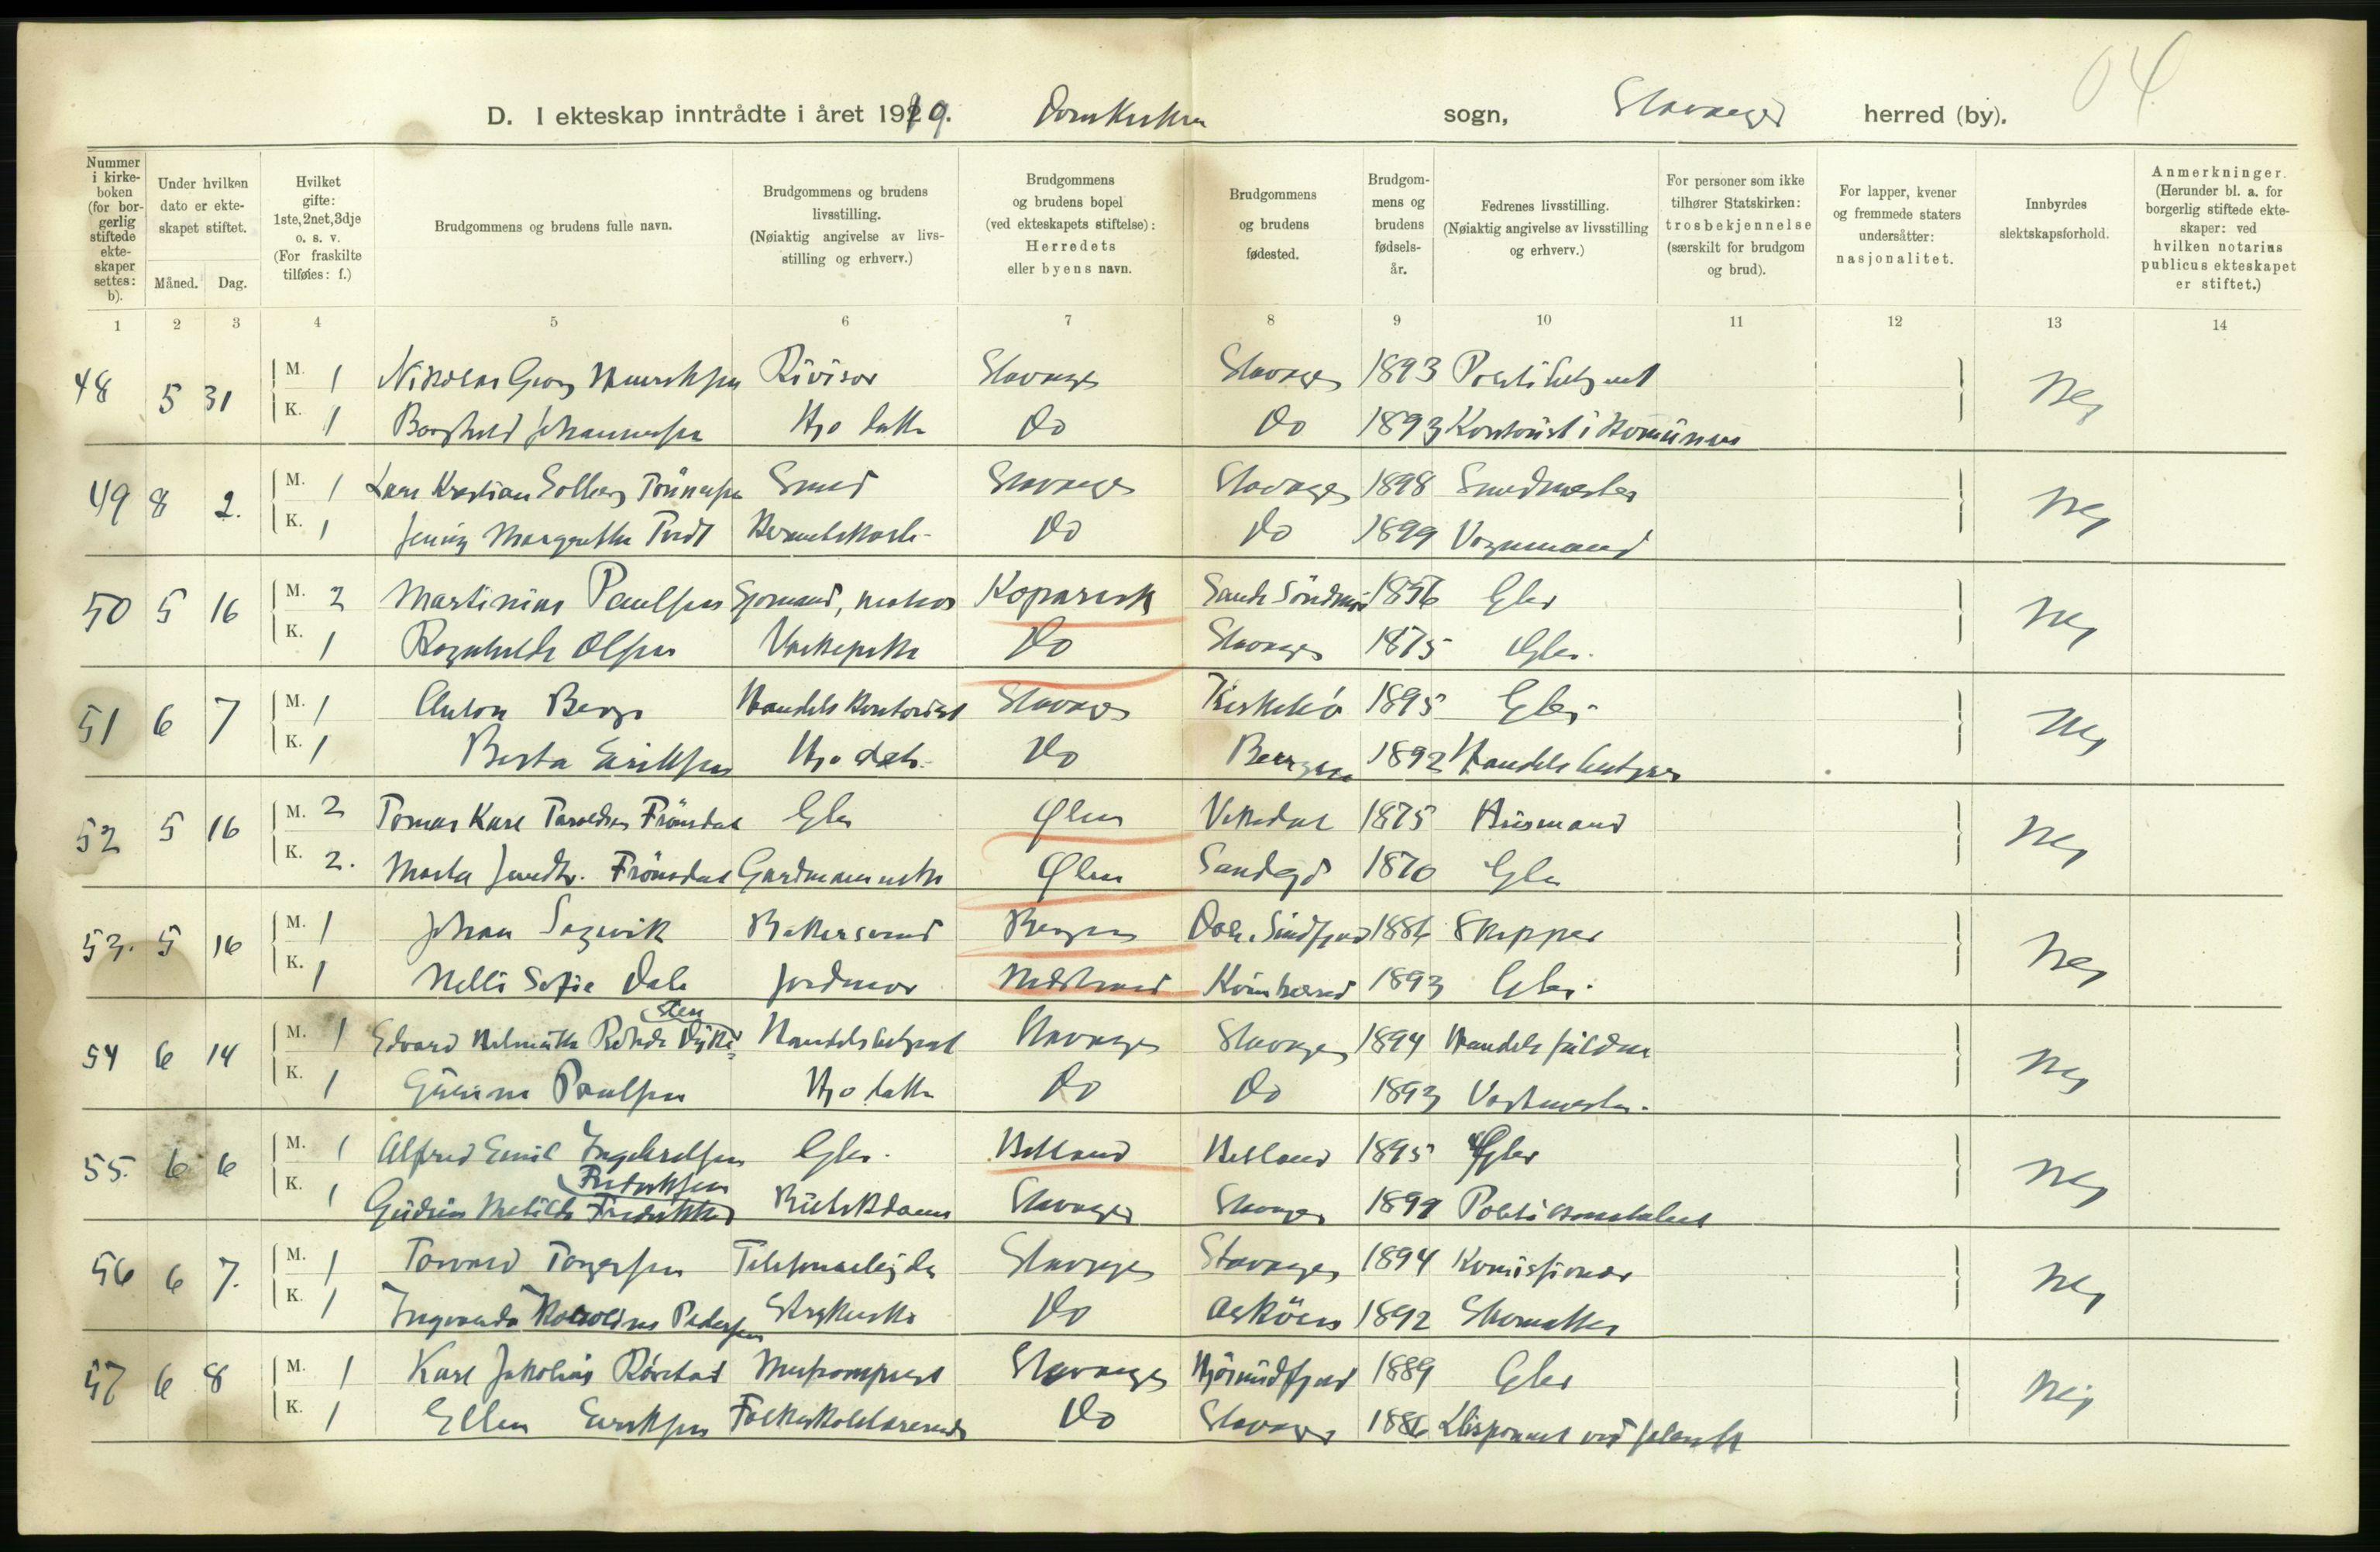 04
D. I ekteskap inntrådte i året 1919. Domkirken sogn, Stavanger herred (by).
Nummer i kirkeboken (for borgerlig stiftede ekteskaper settes: b).
Under hvilken dato er ekteskapet stiftet.
Måned. Dag.
Hvilket gifte: 1ste, 2net, 3dje o. s. v. (For fraskilte tilføies: f.)
Brudgommens og brudens fulle navn.
Brudgommens og brudens livsstilling. (Nøiaktig angivelse av livsstilling og erhverv.)
Brudgommens og brudens bopel (ved ekteskapets stiftelse): Herredets eller byens navn.
Brudgommens og brudens fødested.
Brudgommens og brudens fødselsår.
Fedrenes livsstilling. (Nøiaktig angivelse av livsstilling og erhverv.)
For personer som ikke tilhører Statskirken: trosbekjennelse (særskilt for brudgom og brud).
For lapper, kvener og fremmede staters undersåtter: nasjonalitet.
Innbyrdes slektskapsforhold.
Anmerkninger. (Herunder bl. a. for borgerlig stiftede ekteskaper: ved hvilken notarius publicus ekteskapet er stiftet.)
1 2 3 4 5 6 7 8 9 10 11 12 13 14
48 5 31 M. 1 Nikolai Georg Revisor Stavanger Stavanger 1893 Politibetjent Nei
K. 1 Borghild Johannessen Hjo datter Do Do 1893 Kontorist i
49 8 2. M. 1 Lars Kristian Solberg Tönnessen Smed Stavanger Stavanger 1898 Smedmester Nei
K. 1 Jenny Margrethe Do Do 1899 Vognmand
50 5 16 M. 2 Martinius Paulsen Sjømand, Kopervik Sande Söndmör 1856 Gbr Nei
K. 1 Ragnhilde Olsen Do Stavanger 1875 Gbr.
51 6 7 M. 1 Anton Berge Handels Kontorist Stavanger 1895 Gbr. Nei
K. 1 Berta Eriksen Hjo datr. Do Bergen 1892 Handels betjent
52 5 16 M. 2 Tomas Karl Frönsdal Gbr Ølen Vikedal 1875 Husmand Nei
K. 2. Marta Frönsdal Ølen Sandeid 1870 Gbr
53. 5 16 M. 1 Johan Sagevik Bakersvend Bergen Dale Söndfjord 1886 Skipper Nei
K. 1 Nelli Sofie Dale Jordmor Nedstrand Kvinherred 1893 Gbr.
54 6 14 M. 1 Edvard Handelsbetjent Stavanger Stavanger 1894 Nei
K. 1 Paulsen Hjo datter Do Do 1893
55. 6 6 M. 1 Alfred Emil Ingebretsen Gbr. Hetland Hetland 1895 Gbr Nei
Fredriksen
K. 1 Gudrun Matilde Fredrikke Butikdame Stavanger Stavanger 1899 Politikonstabel
56 6 7. M. 1 Torvald Torgersen Telefonarbeider Stavanger Stavanger 1894 Komissionær Nei
K. 1 Pedersen Do Askøen 1892 Skomaker
57 6 8 M. 1 Karl Jakobius Rörstad Stavanger Hjörundfjord 1889 Gbr Nei
K. 1 Ellen Eriksen Folkeskolelærerinde Do Stavanger 1886